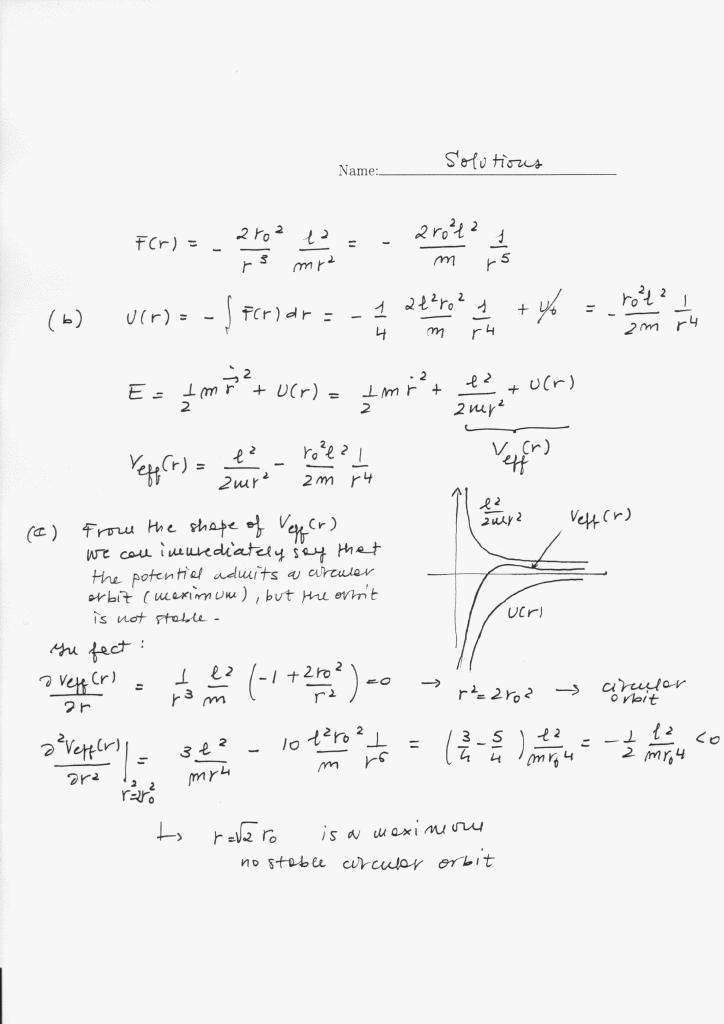 Name: Solutions
F(r) = - 2r₀²/r³ ℓ²/mr² = - 2r₀²ℓ²/m 1/r⁵
(b) U(r) = - ∫ F(r) dr = - 1/4 2ℓ²r₀²/m 1/r⁴ + U₀ = - r₀²ℓ²/2m 1/r⁴
E = 1/2 m ṙ⃗² + U(r) = 1/2 m ṙ² + ℓ²/2mr² + U(r)
V_eff(r)
V_eff(r) = ℓ²/2mr² - r₀²ℓ²/2m 1/r⁴
(c) From the shape of V_eff(r)
we can immediately say that
the potential admits a circular
orbit (maximum), but the orbit
is not stable -
ℓ²/2mr²
V_eff(r)
U(r)
In fact :
∂V_eff(r)/∂r = 1/r³ ℓ²/m (-1 + 2r₀²/r²) = 0 → r² = 2r₀² → circular orbit
∂²V_eff(r)/∂r² |r²=2r₀² = 3ℓ²/mr⁴ - 10 ℓ²r₀²/m 1/r⁶ = (3/4 - 5/4) ℓ²/mr₀⁴ = - 1/2 ℓ²/mr₀⁴ < 0
↳ r = √2 r₀ is a maximum
no stable circular orbit